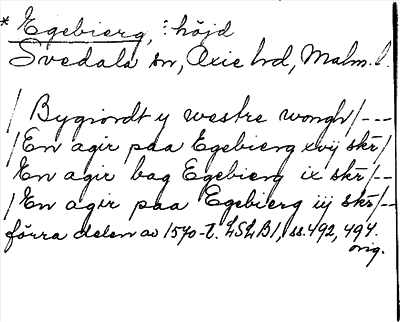 * Egebierg, :höjd
Svedala sn, Oxie hd, Malm. l.
/ Bygiordt y westre wongh/---
/ En agir paa Egebierg xvij skr/
En agir bag Egebierg ix skr/--
/ En agir paa Egebierg iij skr/--
förra delen av 1570-t. LSLB1, ss. 492, 494.
orig.